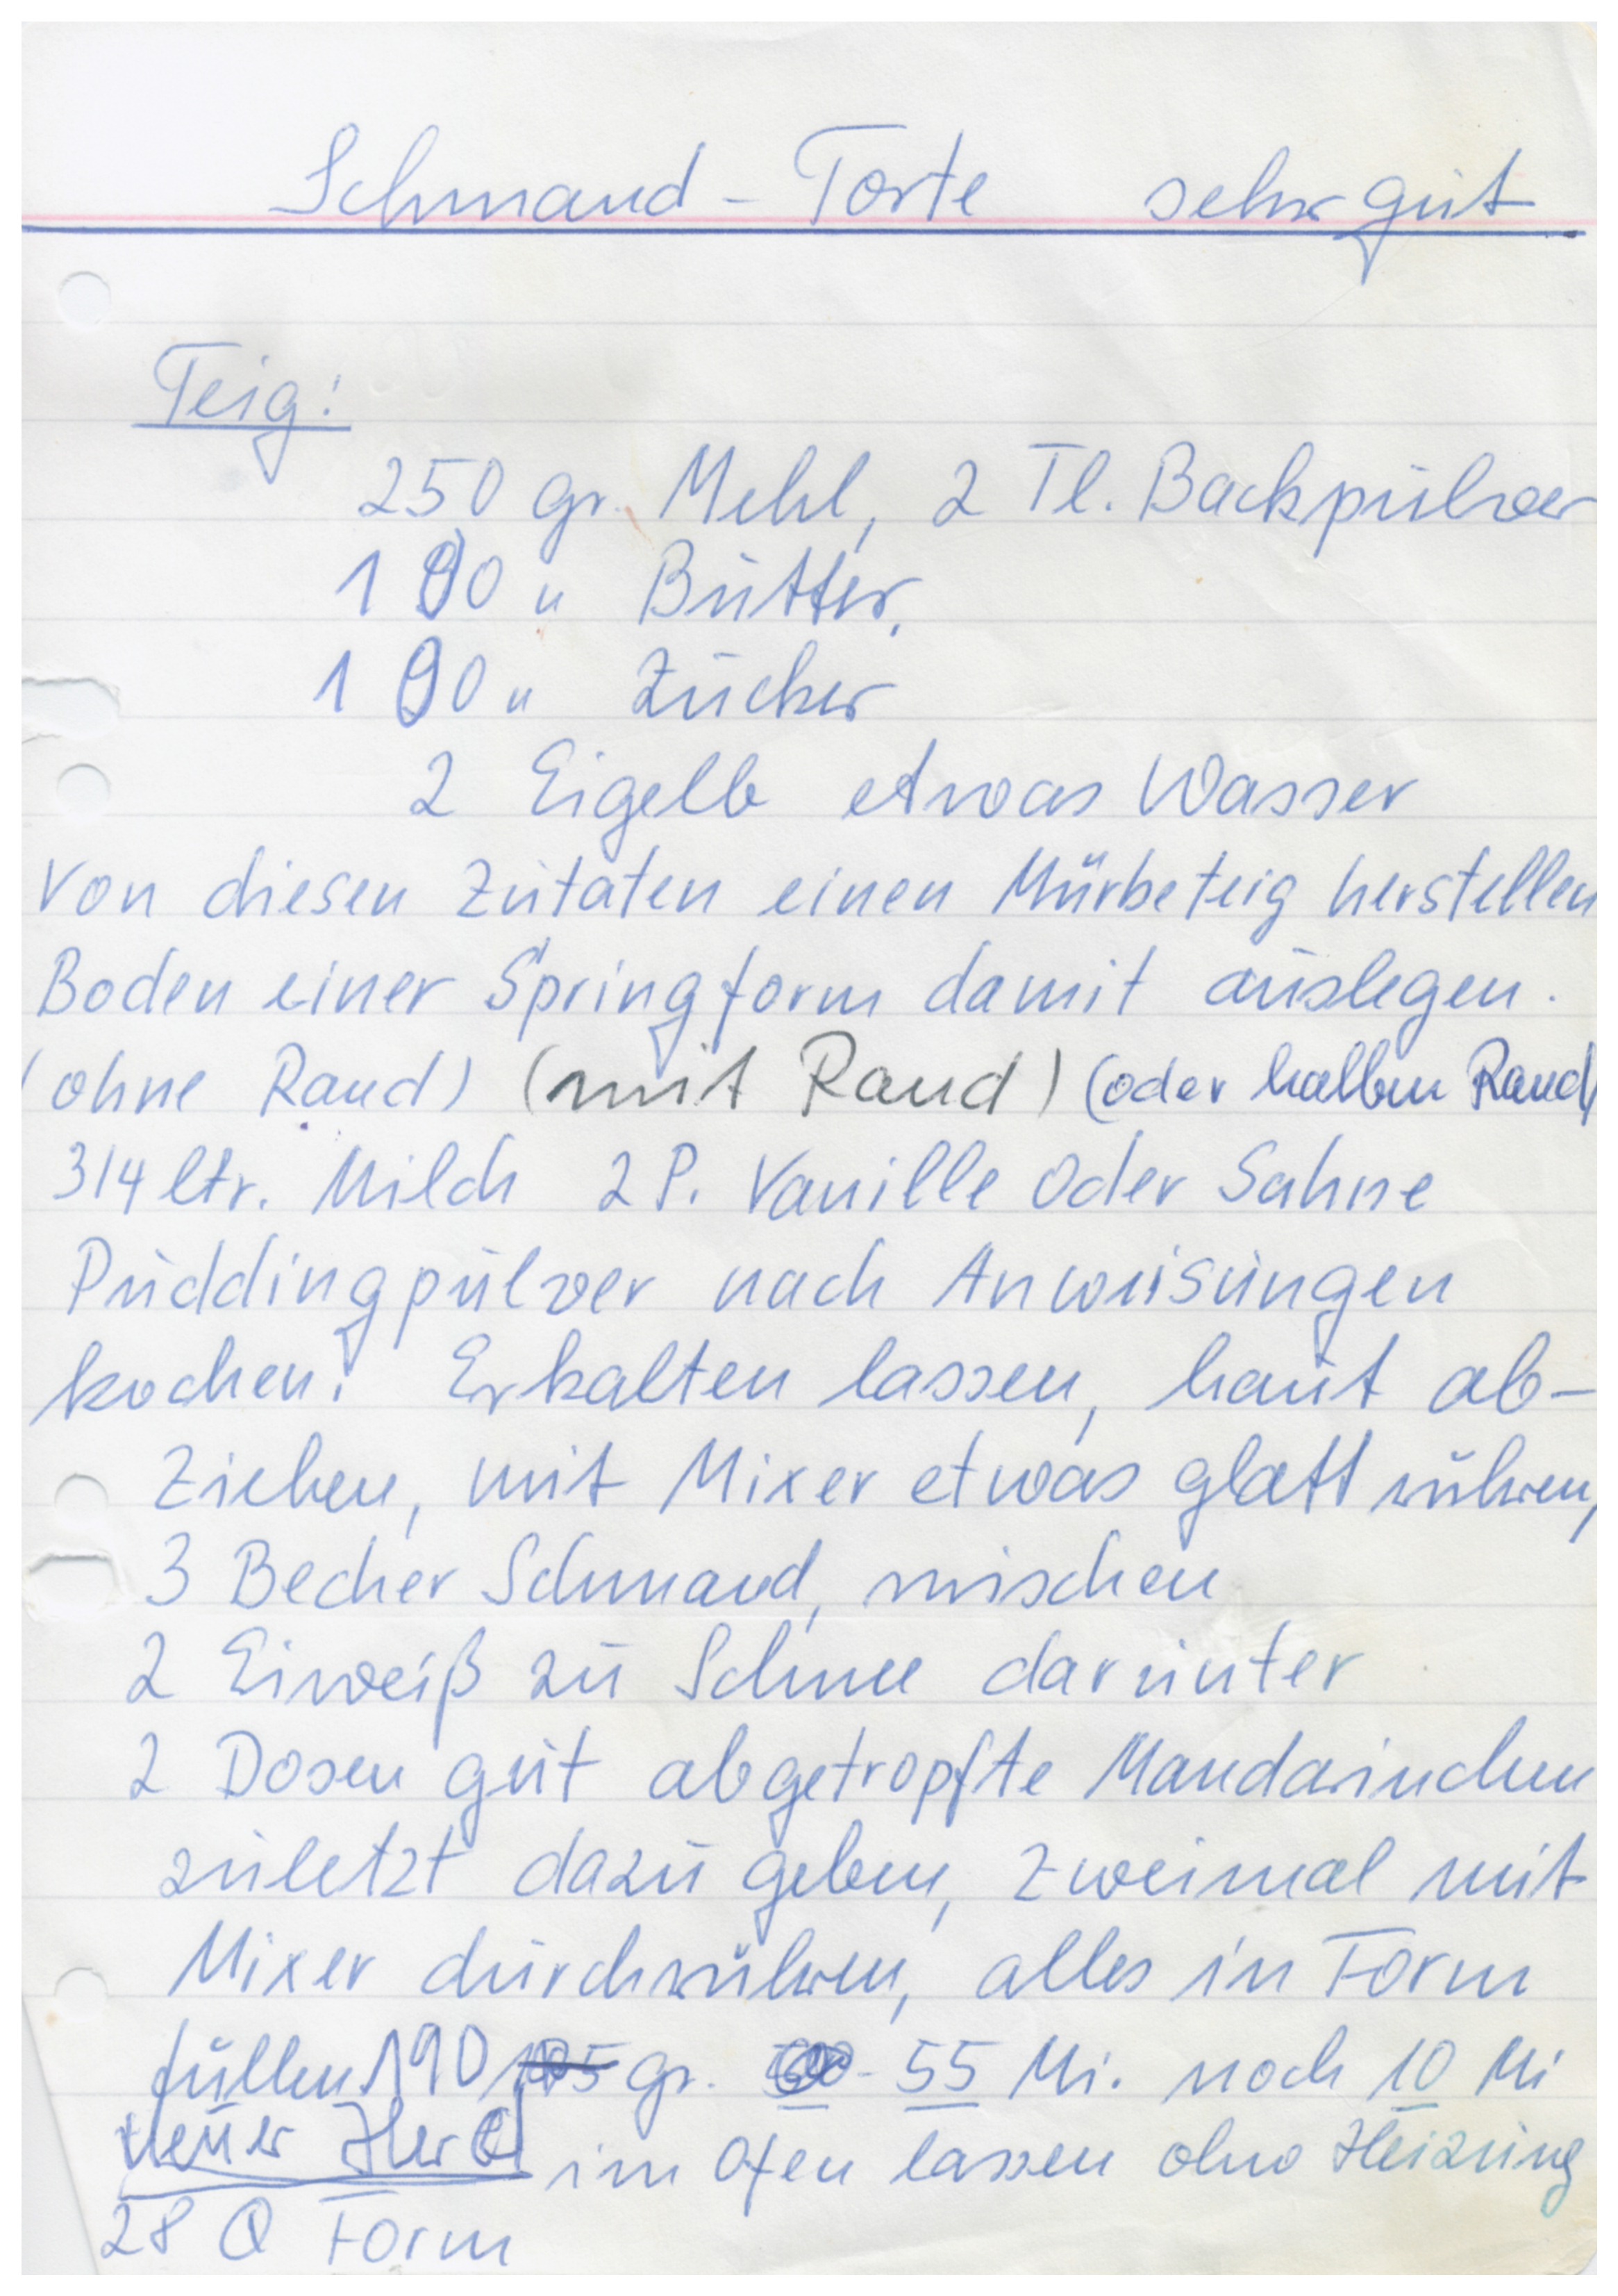 Schmand - Torte sehr gut
Teig:
250 gr. Mehl, 2 Tl. Backpulver
190 " Butter,
190 " Zucker
2 Eigelb etwas Wasser
Von diesen Zutaten einen Mürbeteig herstellen
Boden einer Springform damit auslegen.
(ohne Rand) (mit Rand) (oder halben Rand)
3/4 ltr. Milch 2 P. Vanille oder Sahne
Puddingpulver nach Anweisungen
kochen! Erkalten lassen, haut ab-
ziehen, mit Mixer etwas glatt rühren,
3 Becher Schmand, mischen
2 Eiweiß zu Schnee darunter
2 Dosen gut abgetropfte Mandarinchen
zuletzt dazu geben, zweimal mit
Mixer durchrühren, alles in Form
füllen 190 gr. - 55 Mi. noch 10 Mi
neuer Herd im Ofen lassen ohne Heizung
28 Ø Form